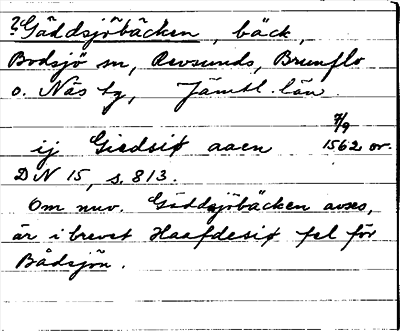 ?Gäddsjöbäcken, bäck,
Bodsjö sn, Revsunds, Brunflo
o. Näs tg, Jämtl. län.
7/9
ij Giedsiø aaen 1562 or.
DN 15, s. 813.
Om nuv. Gäddsjöbäcken avses,
är i brevet Haafdesiø fel för
Bådsjön.